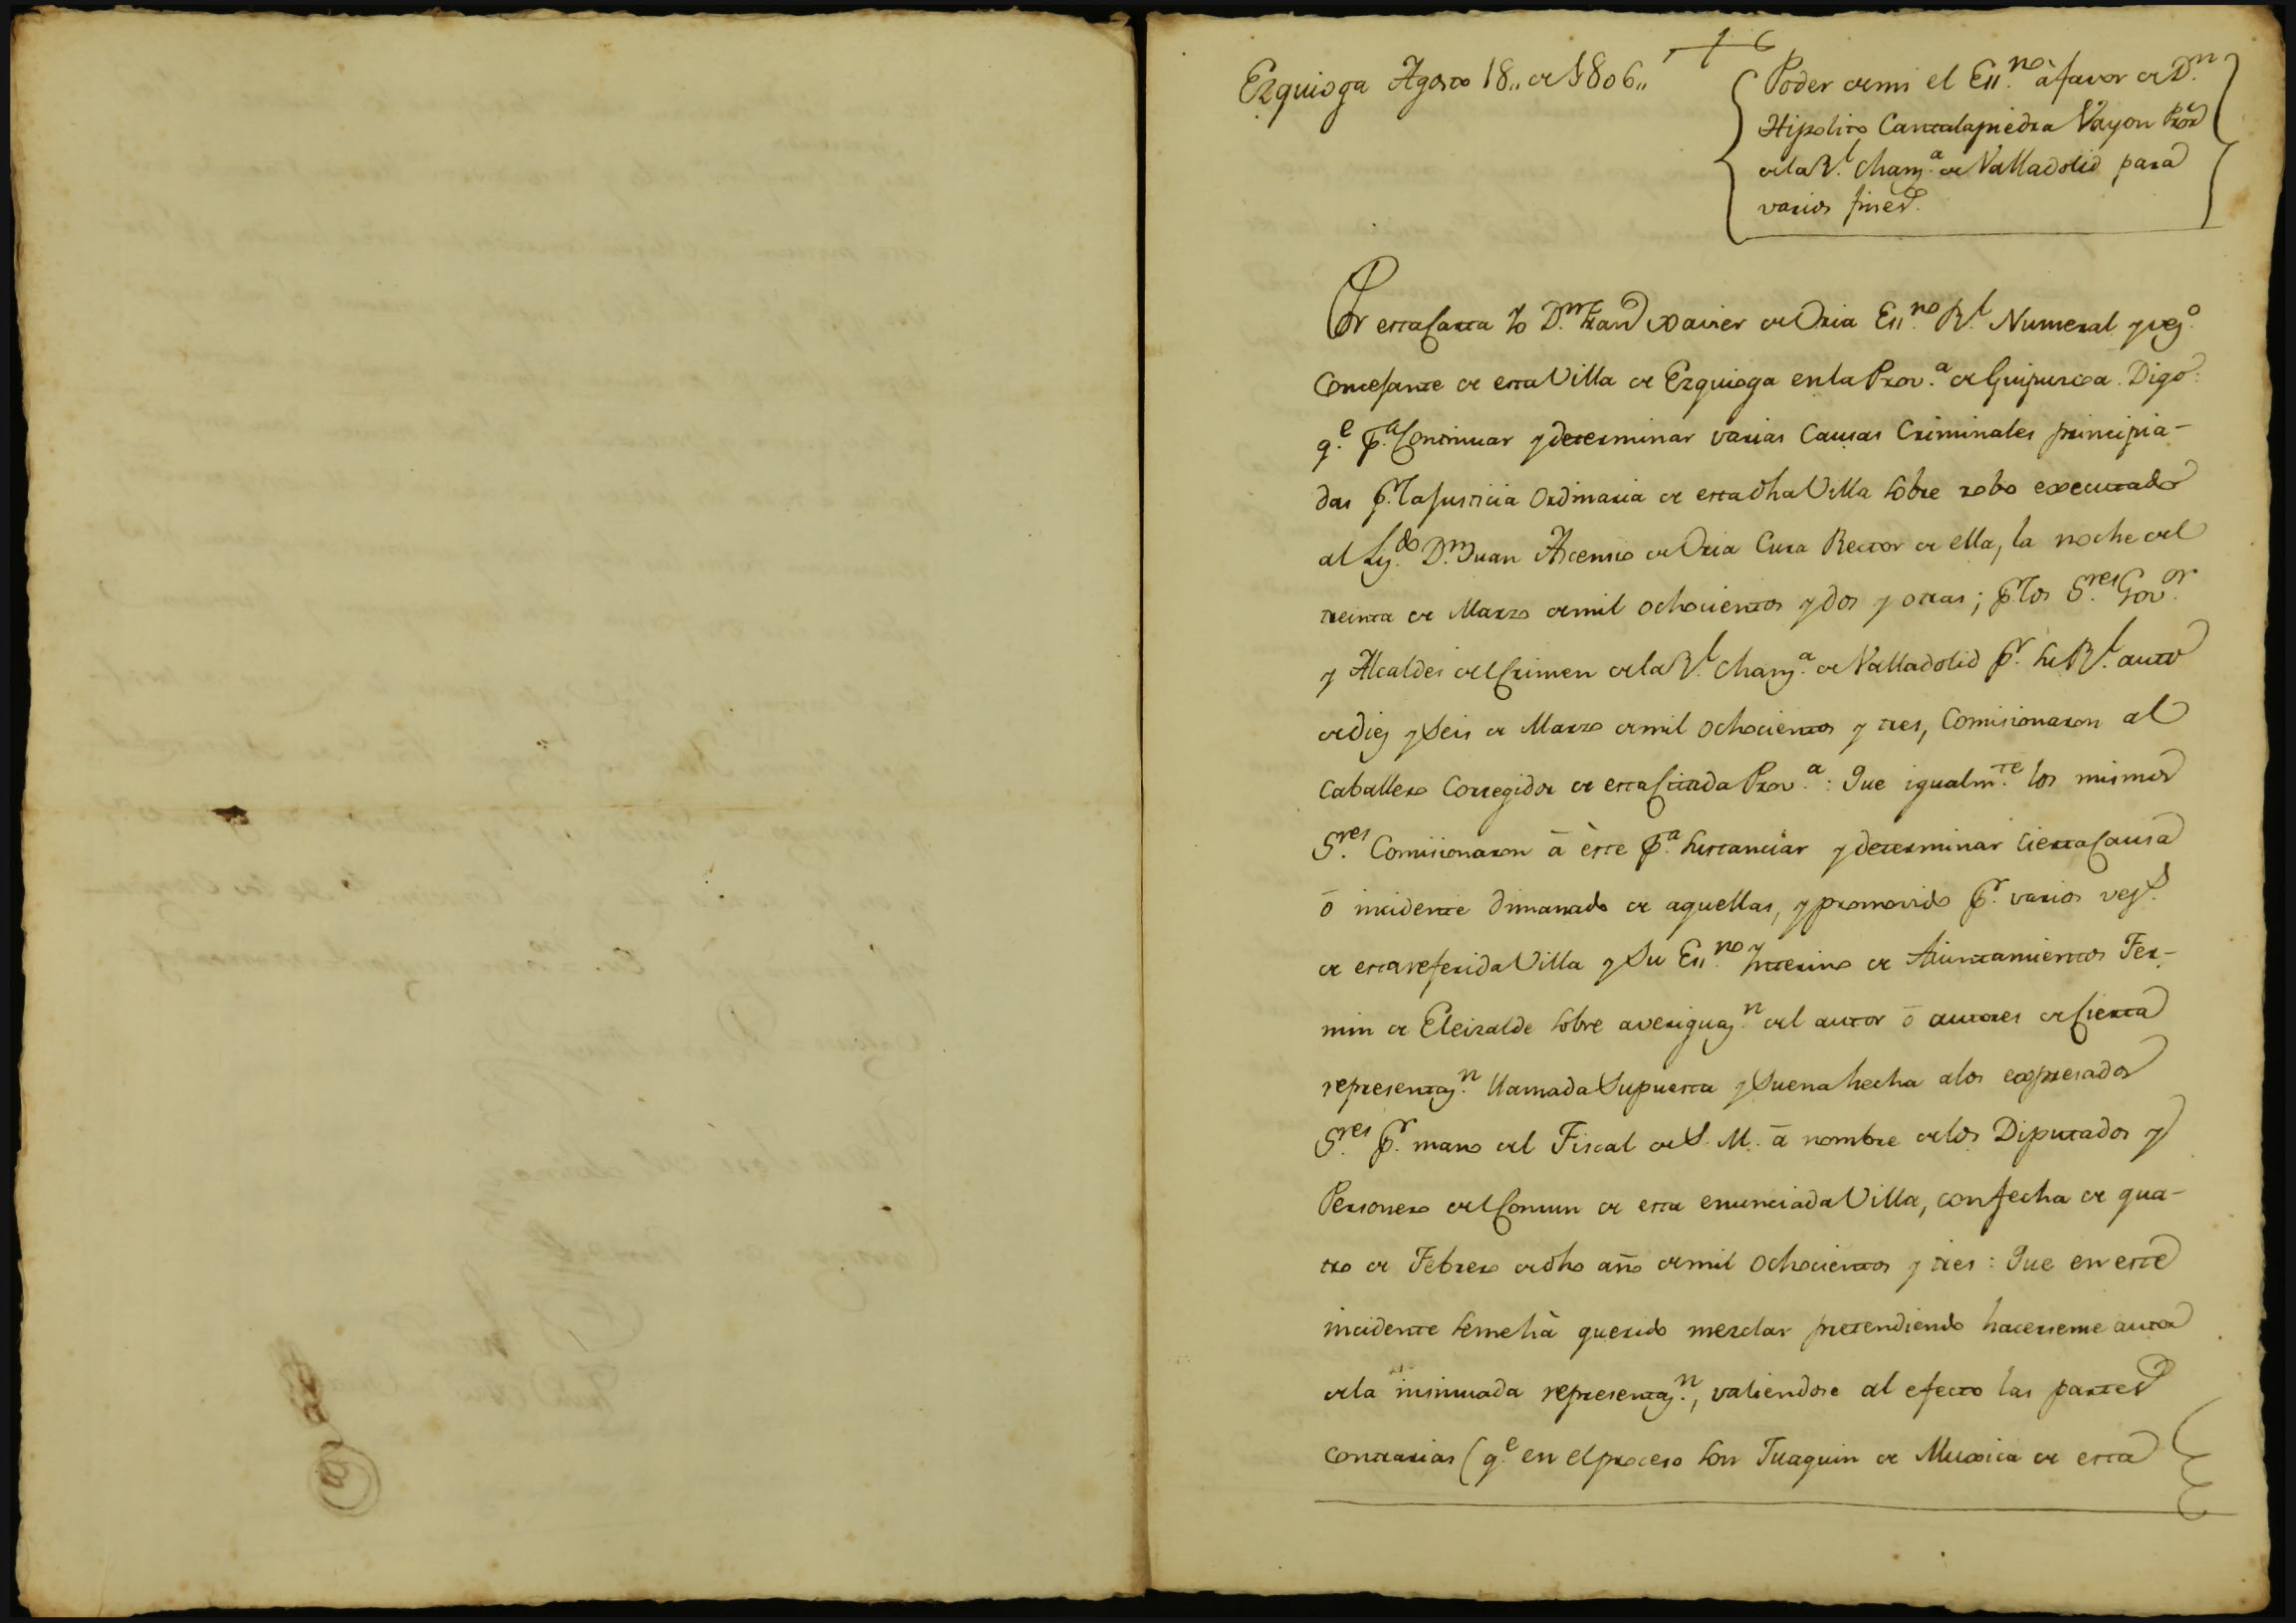 Ezquioga Agosto 18,, de 1806,,
Poder de mi el Ess.no à favor de D.n
Hipolito Cantalapiedra Vayon Pror
de la R.l Chanz.a de Valladolid para
varios fines.
Por esta Carta Yo D.n Fran.co Xavier de Oria Ess.no R.l Numeral y vez.o
Concejante de esta Villa de Ezquioga en la Prov.a de Guipuzcoa. Digo:
q.e p.a Continuar y determinar varias Causas Criminales principia-
das p.r la Justicia Ordinaria de esta dha Villa sobre robo executado
al Liz.do D.n Juan Ascensio de Oria Cura Rector de ella, la noche del
treinta de Marzo de mil ochocientos y dos y otras; p.r los S.res Gov.or
y Alcaldes del Crimen de la R.l Chanz.a de Valladolid p.r su R.l auto
de diez y Seis de Marzo de mil ochocientos y tres, Comisionaron al
Caballero Corregidor de esta Citada Prov.a: Que igualm.te los mismos
S.res Comisionaron ā este p.a sustanciar y determinar cierta Causa
ō incidente dimanado de aquellas, y promovido p.r varios vez.s
de esta referida Villa y su Ess.no Ynterino de Aiuntamientos Fer-
min de Eleizalde sobre averiguaz.n del autor ō autores de Cierta
representaz.n llamada Supuesta y Suena hecha a los expresados
S.res p.r mano del Fiscal de S. M. ā nombre de los Diputados y
Personero del Comun de esta enunciada Villa, con fecha de qua-
tro de Febrero de dho año de mil ochocientos y tres: Que en este
incidente se me hà querido mezclar pretendiendo hacerseme autor
de la insinuada representaz.n, valiendose al efecto las partes
Contrarias (q.e en el proceso son Juaquin de Muxica de esta